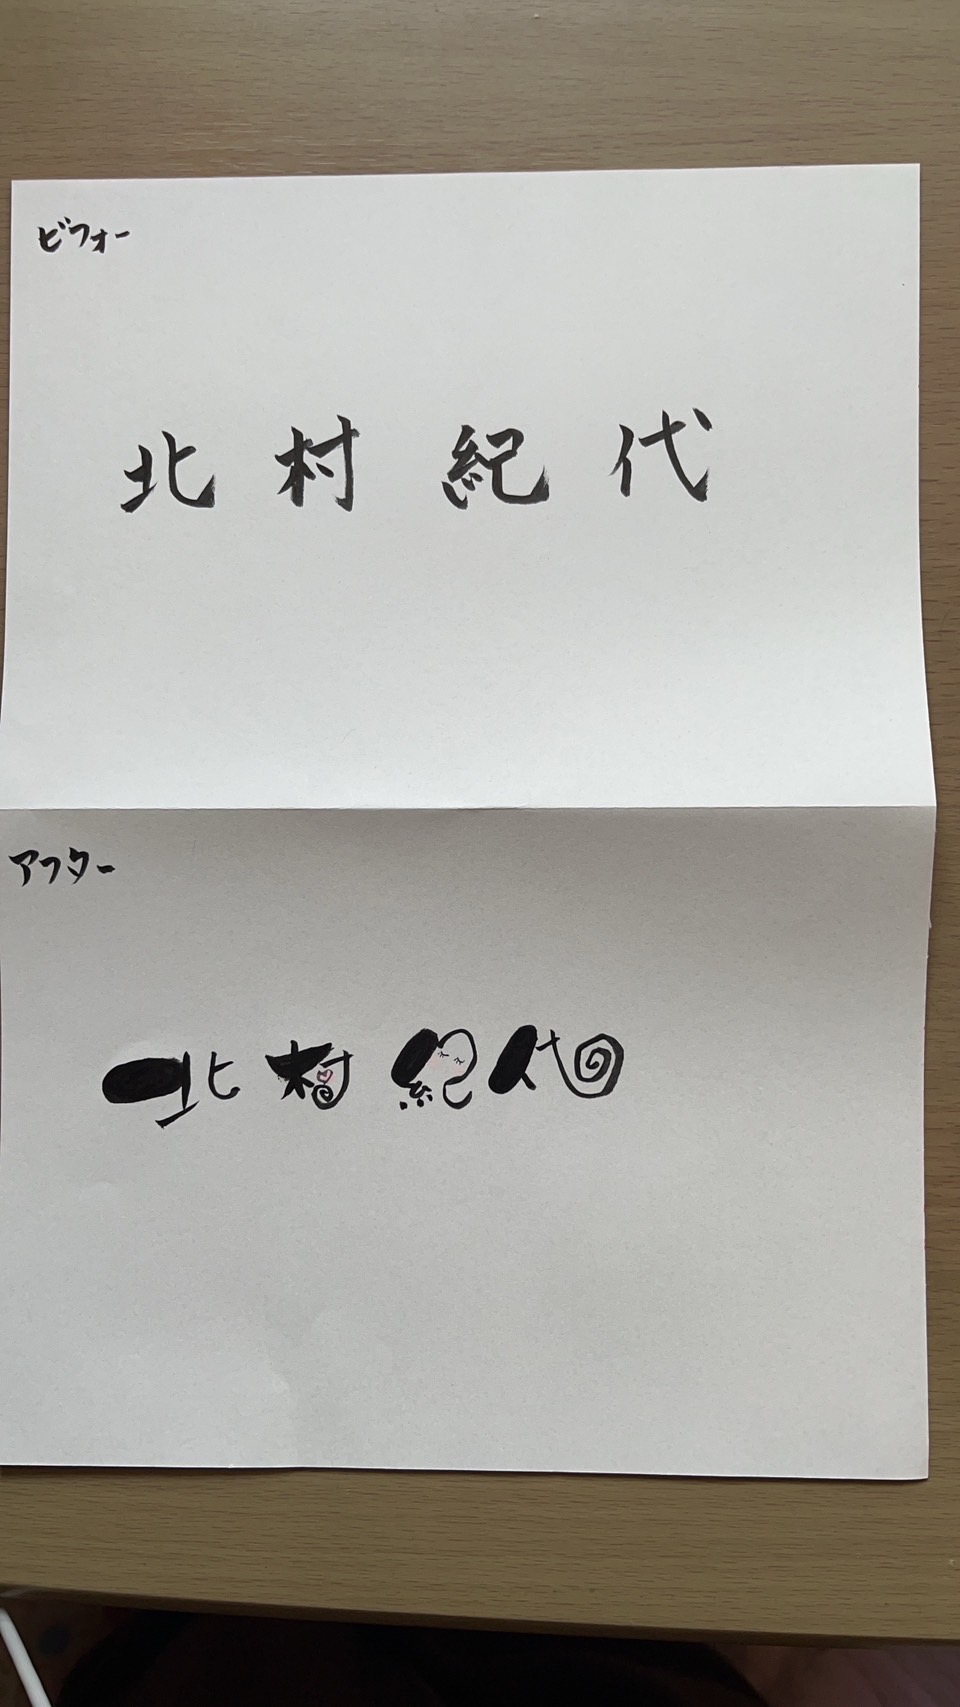 ビフォー
北村紀代
アフター
北村紀代